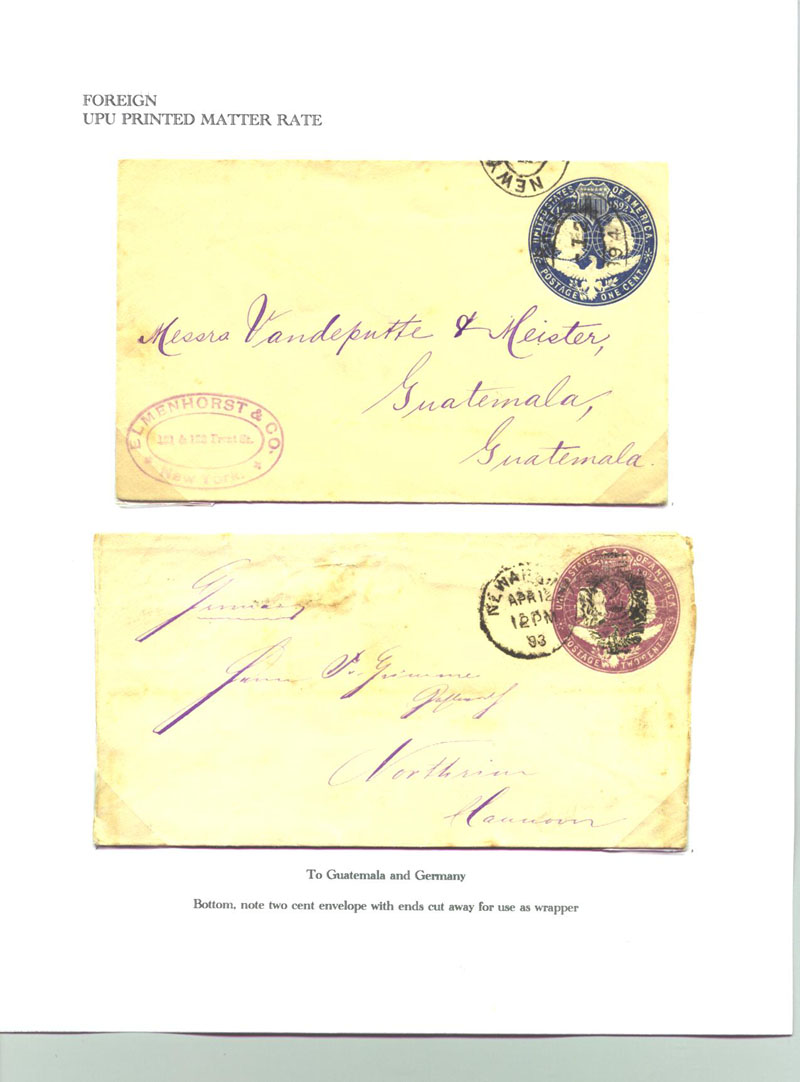 FOREIGN
UPU PRINTED MATTER RATE
NEW Y
UNITED STATES OF AMERICA
POSTAGE ONE CENT
Messrs Vandeputte & Meister,
Guatemala,
Guatemala.
ELMENHORST & CO.
Front St.
New York.
NEWAR
APR 12
12 PM
93
UNITED STATES OF AMERICA
POSTAGE TWO CENTS
Hannover
To Guatemala and Germany
Bottom, note two cent envelope with ends cut away for use as wrapper